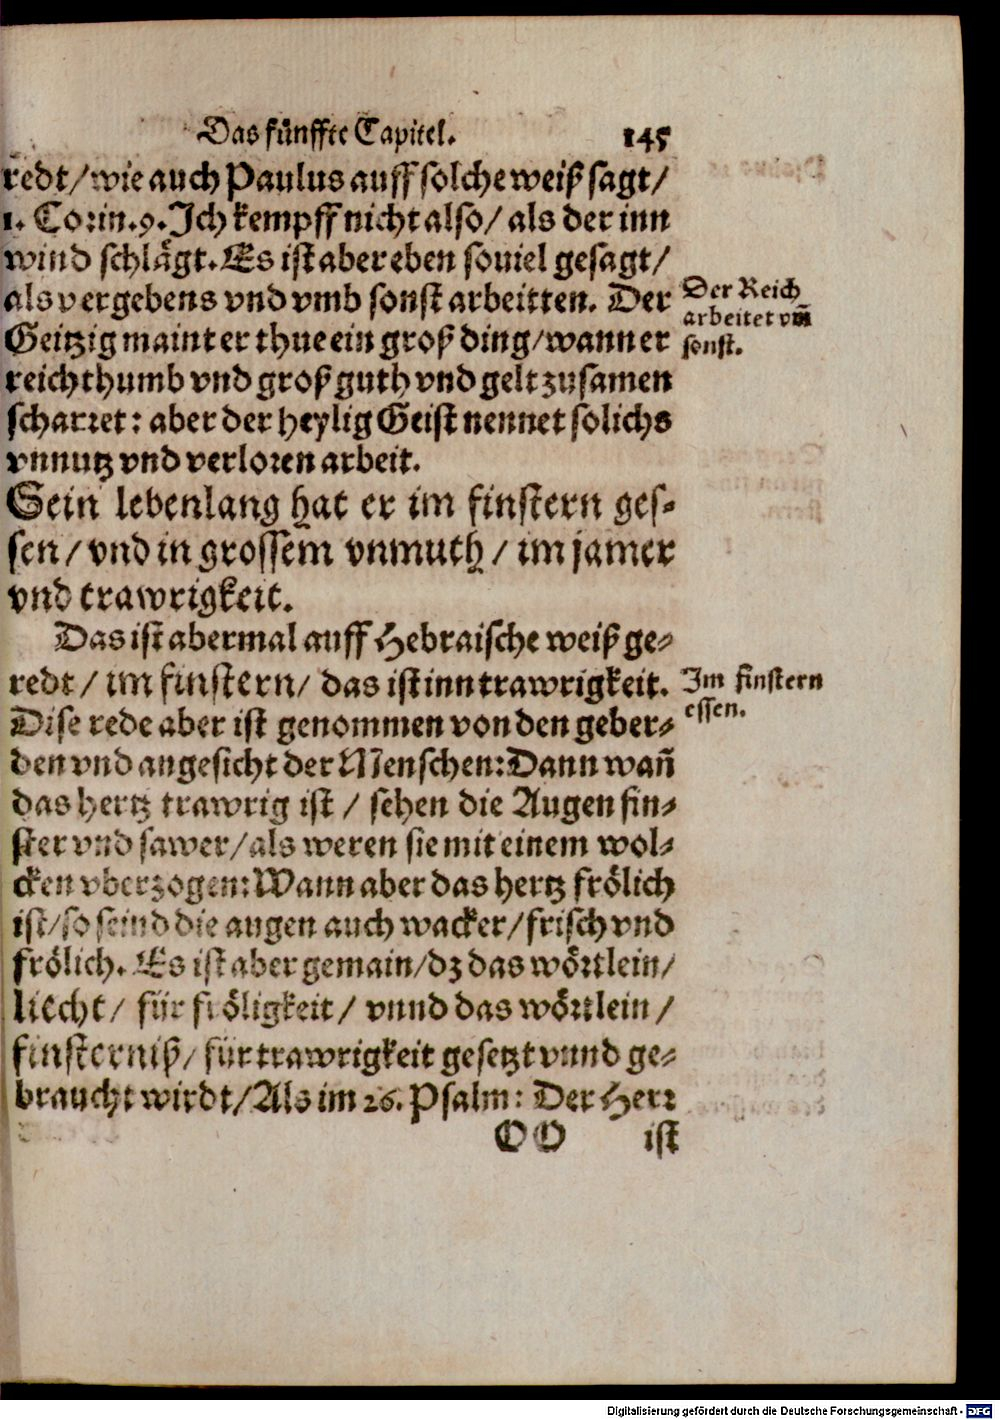 Das fünffte Capitel. 145
redt/ wie auch Paulus auff solche weiß sagt/
1. Corin. 9. Ich kempff nicht also/ als der inn
wind schlägt. Es ist aber eben souiel gesagt/
als vergebens vnd vmb sonst arbeitten. Der
Geitzig maint er thue ein groß ding/ wann er
reichthumb vnd groß guth vnd gelt zusamen
scharret: aber der heylig Geist nennet solichs
vnnutz vnd verloren arbeit.
Der Reich
arbeitet vm̃
sonst.
Sein lebenlang hat er im finstern ges-
sen/ vnd in grossem vnmuth/ im jamer
vnd trawrigkeit.
Das ist abermal auff Hebraische weiß ge-
redt/ im finstern/ das ist inn trawrigkeit.
Dise rede aber ist genommen von den geber-
den vnd angesicht der Menschen: Dann wañ
das hertz trawrig ist/ sehen die Augen fin-
ster vnd sawer/ als weren sie mit einem wol-
cken vberzogen: Wann aber das hertz frölich
ist/ so seind die augen auch wacker/ frisch vnd
frölich. Es ist aber gemain/ dz das wörtlein/
liecht/ für fröligkeit/ vnnd das wörtlein/
finsterniß/ für trawrigkeit gesetzt vnnd ge-
braucht wirdt/ Als im 26. Psalm: Der Herr
Im finstern
essen.
OO ist
Digitalisierung gefördert durch die Deutsche Forschungsgemeinschaft - DFG